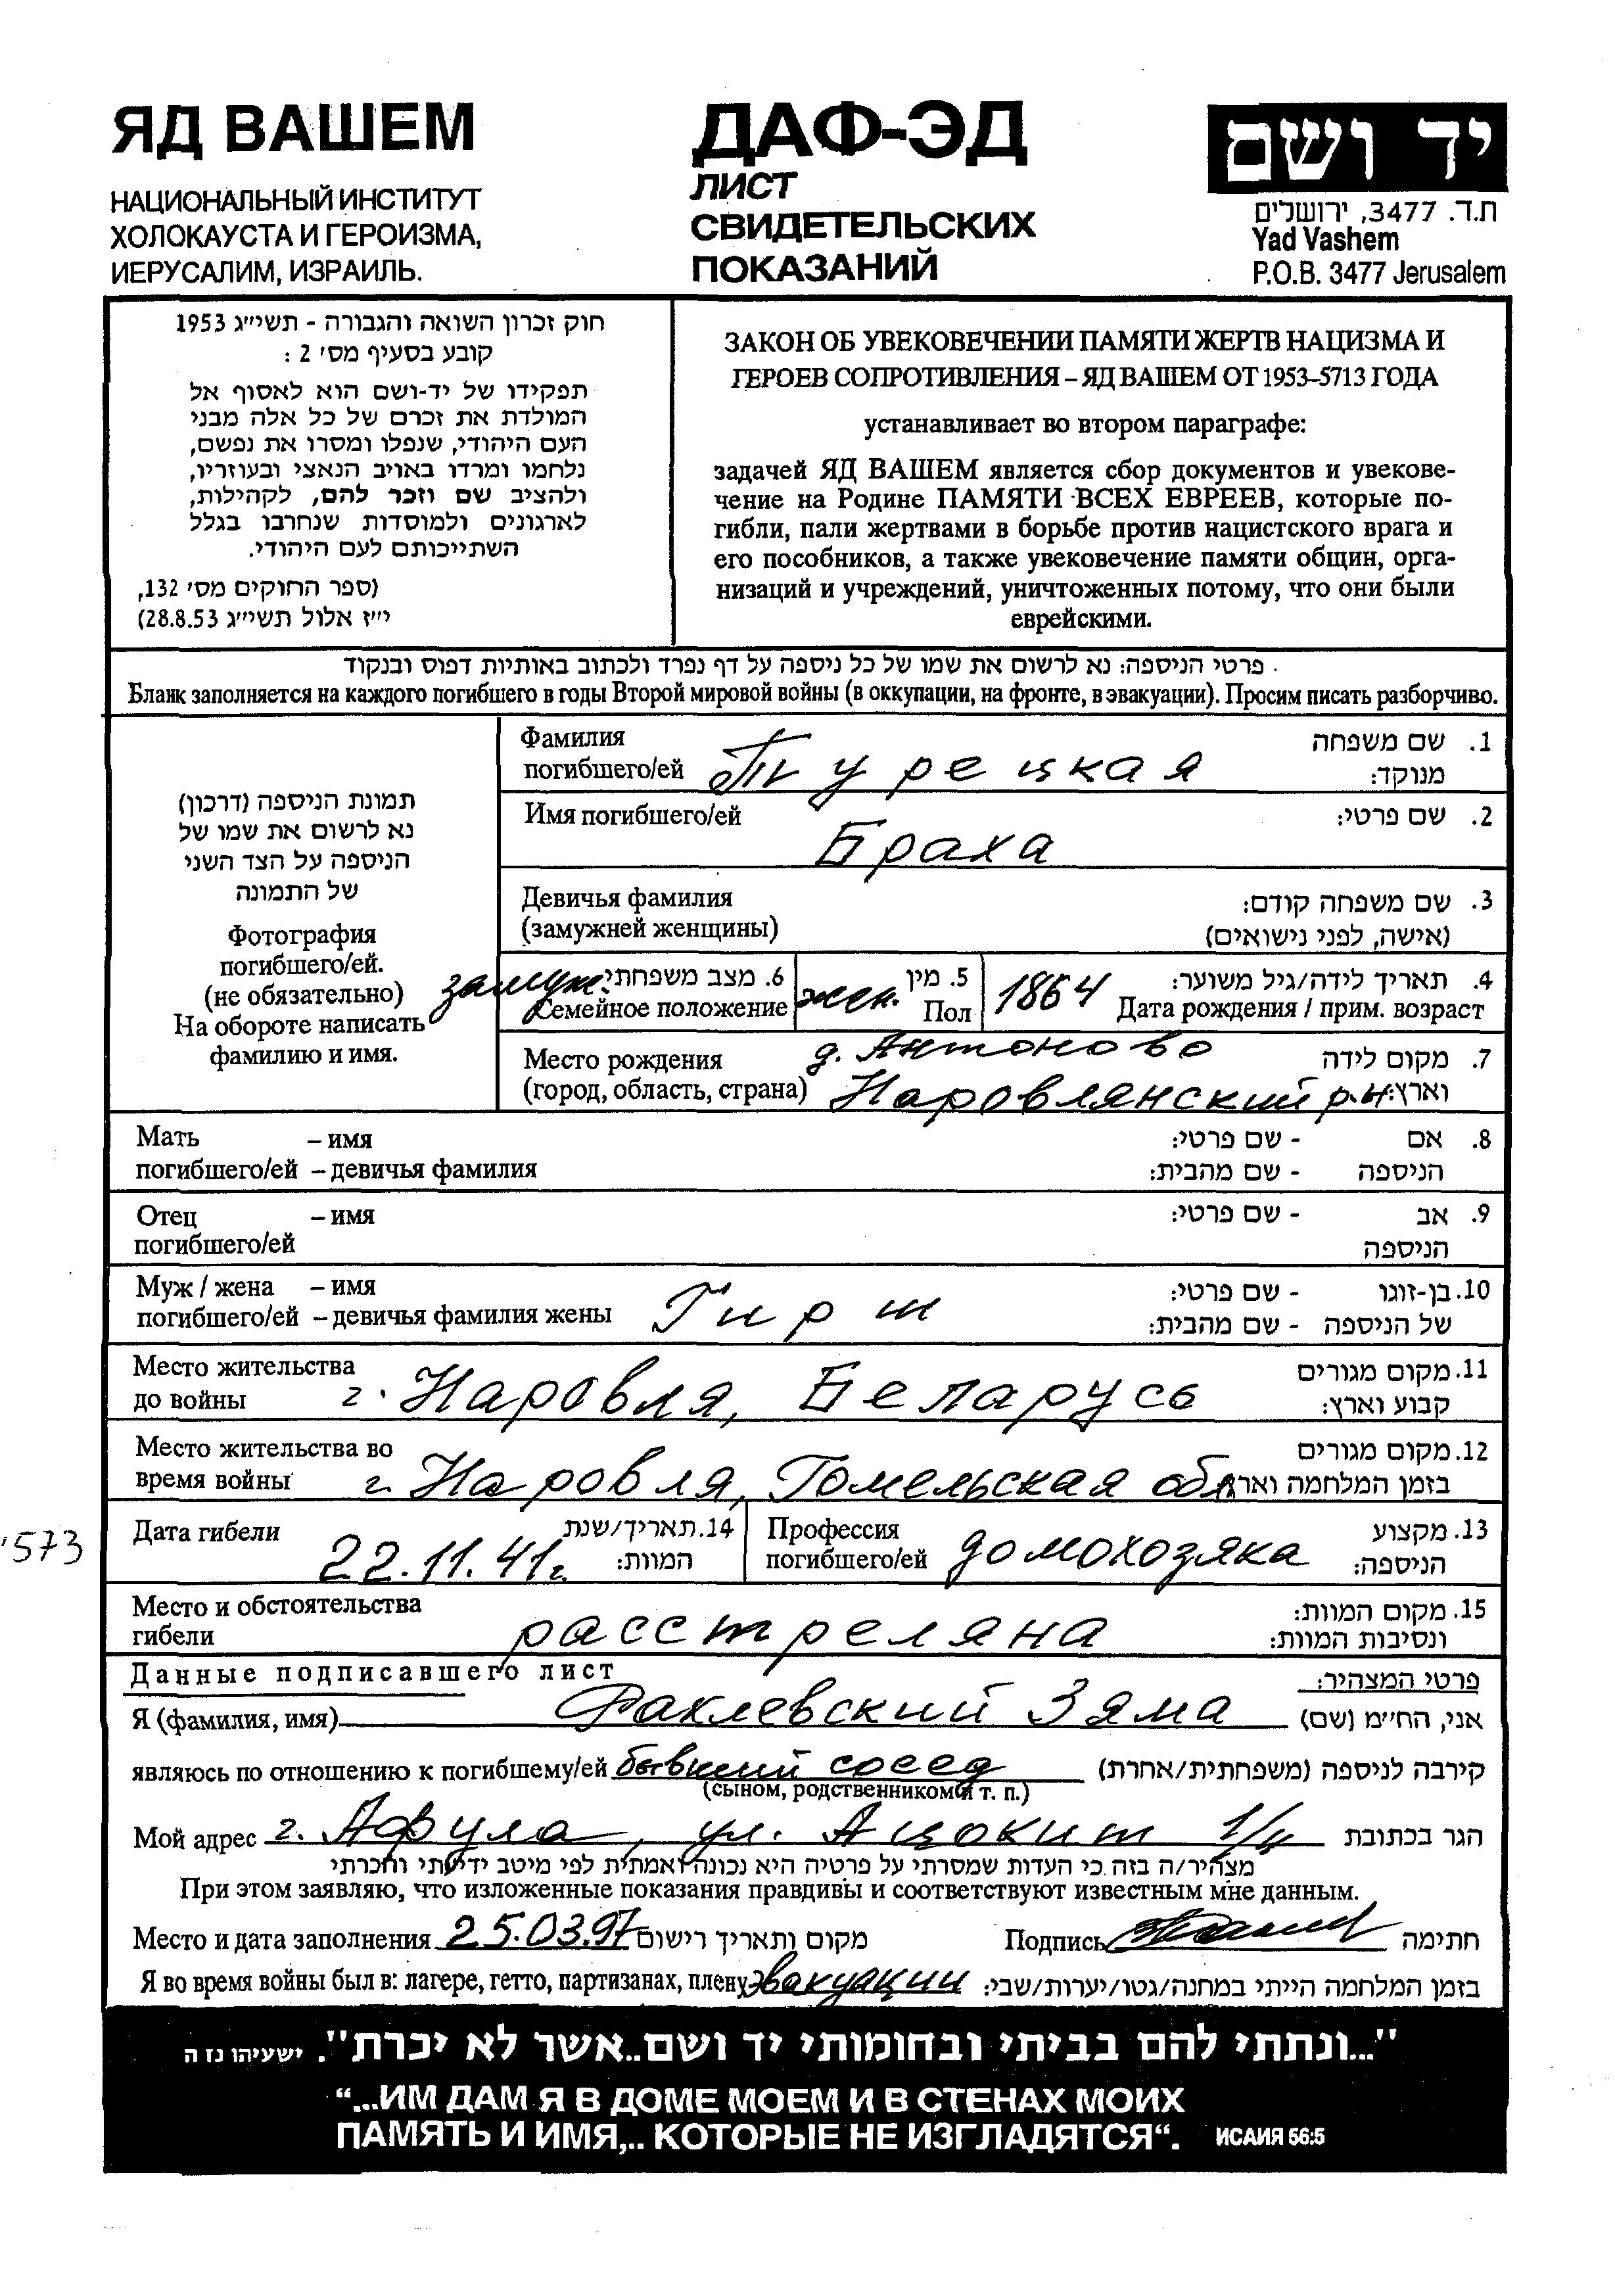 ЯД ВАШЕМ
НАЦИОНАЛЬНЫЙ ИНСТИТУТ
ХОЛОКАУСТА И ГЕРОИЗМА,
ИЕРУСАЛИМ, ИЗРАИЛЬ.
ДАФ-ЭД
ЛИСТ
СВИДЕТЕЛЬСКИХ
ПОКАЗАНИЙ
יד ושם
ת.ד. 3477, ירושלים
Yad Vashem
P.O.B. 3477 Jerusalem
חוק זכרון השואה והגבורה - תשי״ג 1953
קובע בסעיף מס׳ 2 :
תפקידו של יד-ושם הוא לאסוף אל
המולדת את זכרם של כל אלה מבני
העם היהודי, שנפלו ומסרו את נפשם,
נלחמו ומרדו באויב הנאצי ובעוזריו,
ולהציב שם וזכר להם, לקהילות,
לארגונים ולמוסדות שנחרבו בגלל
השתייכותם לעם היהודי.
(ספר החוקים מס׳ 132,
י״ז אלול תשי״ג 28.8.53)
ЗАКОН ОБ УВЕКОВЕЧЕНИИ ПАМЯТИ ЖЕРТВ НАЦИЗМА И
ГЕРОЕВ СОПРОТИВЛЕНИЯ – ЯД ВАШЕМ ОТ 1953–5713 ГОДА
устанавливает во втором параграфе:
задачей ЯД ВАШЕМ является сбор документов и увекове-
чение на Родине ПАМЯТИ ВСЕХ ЕВРЕЕВ, которые по-
гибли, пали жертвами в борьбе против нацистского врага и
его пособников, а также увековечение памяти общин, орга-
низаций и учреждений, уничтоженных потому, что они были
еврейскими.
פרטי הניספה: נא לרשום את שמו של כל ניספה על דף נפרד ולכתוב באותיות דפוס ובנקוד
Бланк заполняется на каждого погибшего в годы Второй мировой войны (в оккупации, на фронте, в эвакуации). Просим писать разборчиво.
תמונת הניספה (דרכון)
נא לרשום את שמו של
הניספה על הצד השני
של התמונה
Фотография
погибшего/ей.
(не обязательно)
На обороте написать
фамилию и имя.
Фамилия 1. שם משפחה
погибшего/ей Турецкая מנוקד:
Имя погибшего/ей 2. שם פרטי:
Браха
Девичья фамилия 3. שם משפחה קודם:
(замужней женщины) (אישה, לפני נישואים)
замуж. 6. מצב משפחתי 5. מין 4. תאריך לידה/גיל משוער:
Семейное положение жен. Пол 1864 Дата рождения / прим. возраст
Место рождения д. Антоново 7. מקום לידה
(город, область, страна) Наровлянский р.н וארץ:
Мать – имя 8. אם - שם פרטי:
погибшего/ей – девичья фамилия הניספה - שם מהבית:
Отец – имя 9. אב - שם פרטי:
погибшего/ей הניספה
Муж / жена – имя 10. בן-זוגו - שם פרטי:
погибшего/ей – девичья фамилия жены Гирш של הניספה - שם מהבית:
Место жительства 11. מקום מגורים
до войны г. Наровля, Беларусь קבוע וארץ:
Место жительства во 12. מקום מגורים
время войны г. Наровля, Гомельская обл בזמן המלחמה וארץ
'573
Дата гибели 14. תאריך/שנת
22.11.41г. המוות:
Профессия 13. מקצוע
погибшего/ей домохозяка הניספה:
Место и обстоятельства 15. מקום המוות:
гибели расстреляна ונסיבות המוות:
Данные подписавшего лист פרטי המצהיר:
Я (фамилия, имя) Факлевский Зяма אני, החי״מ (שם)
являюсь по отношению к погибшему/ей бывший сосед קירבה לניספה (משפחתית/אחרת)
(сыном, родственником и т. п.)
Мой адрес г. Афула, ул. Ацокит 1/4 הגר בכתובת
מצהיר/ה בזה כי העדות שמסרתי על פרטיה היא נכונה ואמתית לפי מיטב ידיעתי והכרתי
При этом заявляю, что изложенные показания правдивы и соответствуют известным мне данным.
Место и дата заполнения 25.03.97 מקום ותאריך רישום Подпись חתימה
Я во время войны был в: лагере, гетто, партизанах, плену эвакуации בזמן המלחמה הייתי במחנה/גטו/יערות/שבי:
"...ונתתי להם בביתי ובחומותי יד ושם..אשר לא יכרת". ישעיהו נז ה
“...ИМ ДАМ Я В ДОМЕ МОЕМ И В СТЕНАХ МОИХ
ПАМЯТЬ И ИМЯ,.. КОТОРЫЕ НЕ ИЗГЛАДЯТСЯ“. ИСАИЯ 56:5